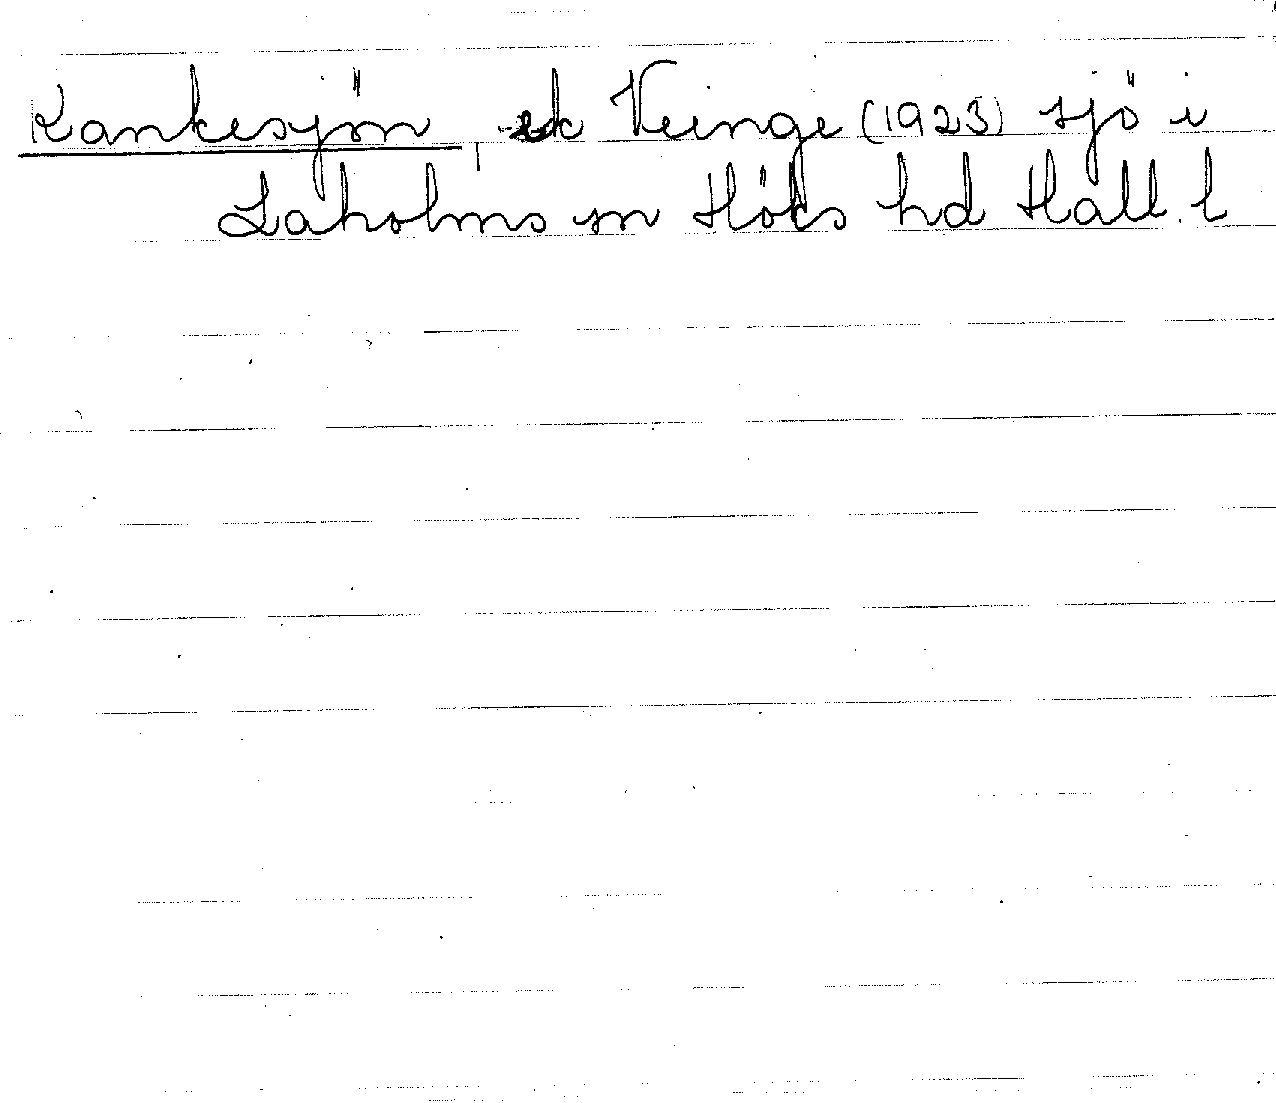 Kankesjön, ek Veinge (1923) sjö i
Laholms sn Höks hd Hall. l